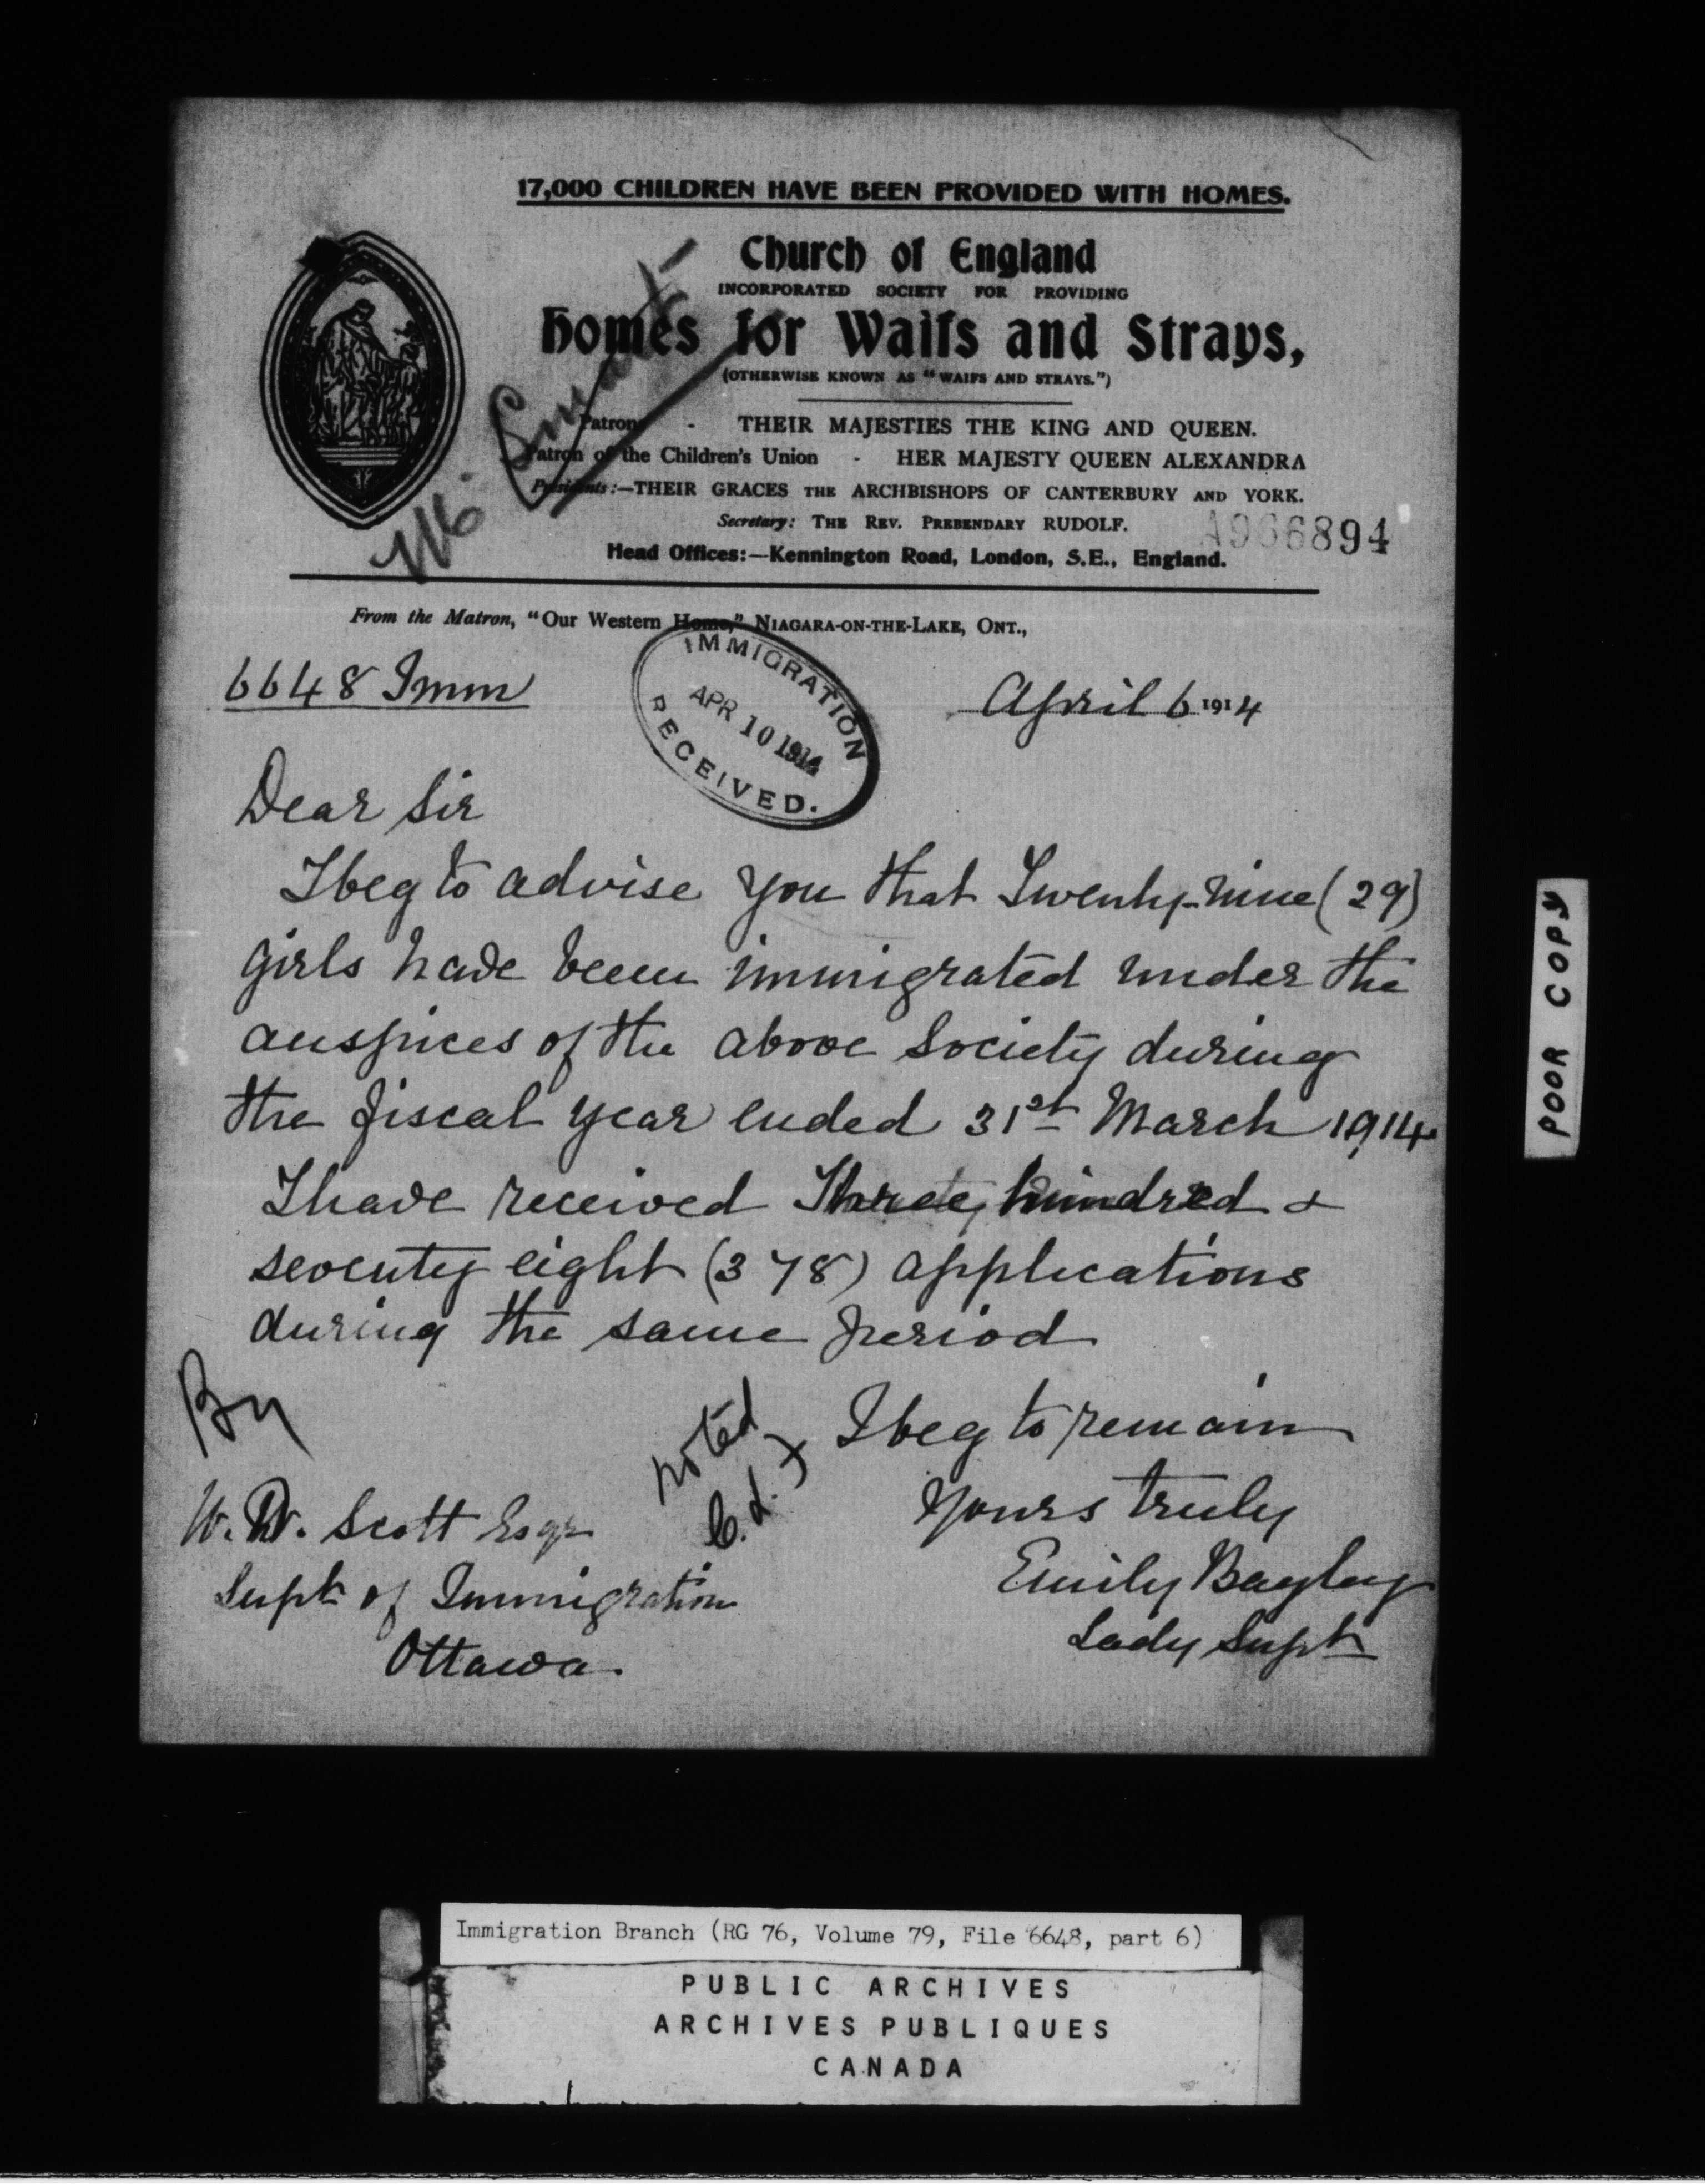 17,000 CHILDREN HAVE BEEN PROVIDED WITH HOMES.
Church of England
INCORPORATED SOCIETY FOR PROVIDING
Homes for Waifs and Strays,
(OTHERWISE KNOWN AS "WAIFS AND STRAYS.")
Mr. Smart
Patrons - THEIR MAJESTIES THE KING AND QUEEN.
Patron of the Children's Union - HER MAJESTY QUEEN ALEXANDRA
Presidents:—THEIR GRACES THE ARCHBISHOPS OF CANTERBURY AND YORK.
Secretary: THE REV. PREBENDARY RUDOLF.
A966894
Head Offices:—Kennington Road, London, S.E., England.
From the Matron, "Our Western Home," NIAGARA-ON-THE-LAKE, ONT.,
IMMIGRATION
APR 10 1914
RECEIVED.
6648 Imm
April 6 1914
Dear Sir
I beg to advise you that Twenty-nine (29)
girls have been immigrated under the
auspices of the above Society during
the fiscal year ended 31st March 1914
I have received Three hundred &
seventy eight (378) applications
during the same period
By
noted
I beg to remain
Yours truly
W. W. Scott Esqr
Emily Bayley
Supt of Immigration
Lady Supt
Ottawa.
POOR COPY
Immigration Branch (RG 76, Volume 79, File 6648, part 6)
PUBLIC ARCHIVES
ARCHIVES PUBLIQUES
CANADA